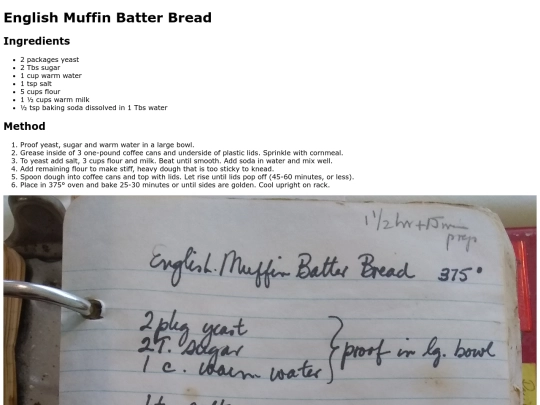 English Muffin Batter Bread
Ingredients
2 packages yeast
2 Tbs sugar
1 cup warm water
1 tsp salt
5 cups flour
1 ½ cups warm milk
½ tsp baking soda dissolved in 1 Tbs water
Method
1. Proof yeast, sugar and warm water in a large bowl.
2. Grease inside of 3 one-pound coffee cans and underside of plastic lids. Sprinkle with cornmeal.
3. To yeast add salt, 3 cups flour and milk. Beat until smooth. Add soda in water and mix well.
4. Add remaining flour to make stiff, heavy dough that is too sticky to knead.
5. Spoon dough into coffee cans and top with lids. Let rise until lids pop off (45-60 minutes, or less).
6. Place in 375° oven and bake 25-30 minutes or until sides are golden. Cool upright on rack.
1 1/2 hr + 15 min
prep
English Muffin Batter Bread 375°
2 pkg yeast
2 T. sugar
1 c. warm water
proof in lg. bowl